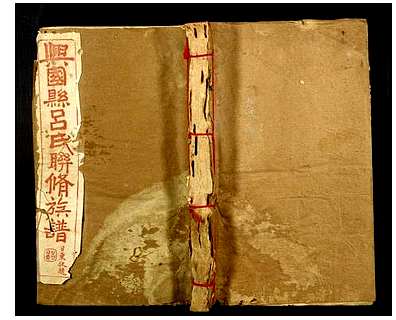 興國縣呂氏聯脩族譜